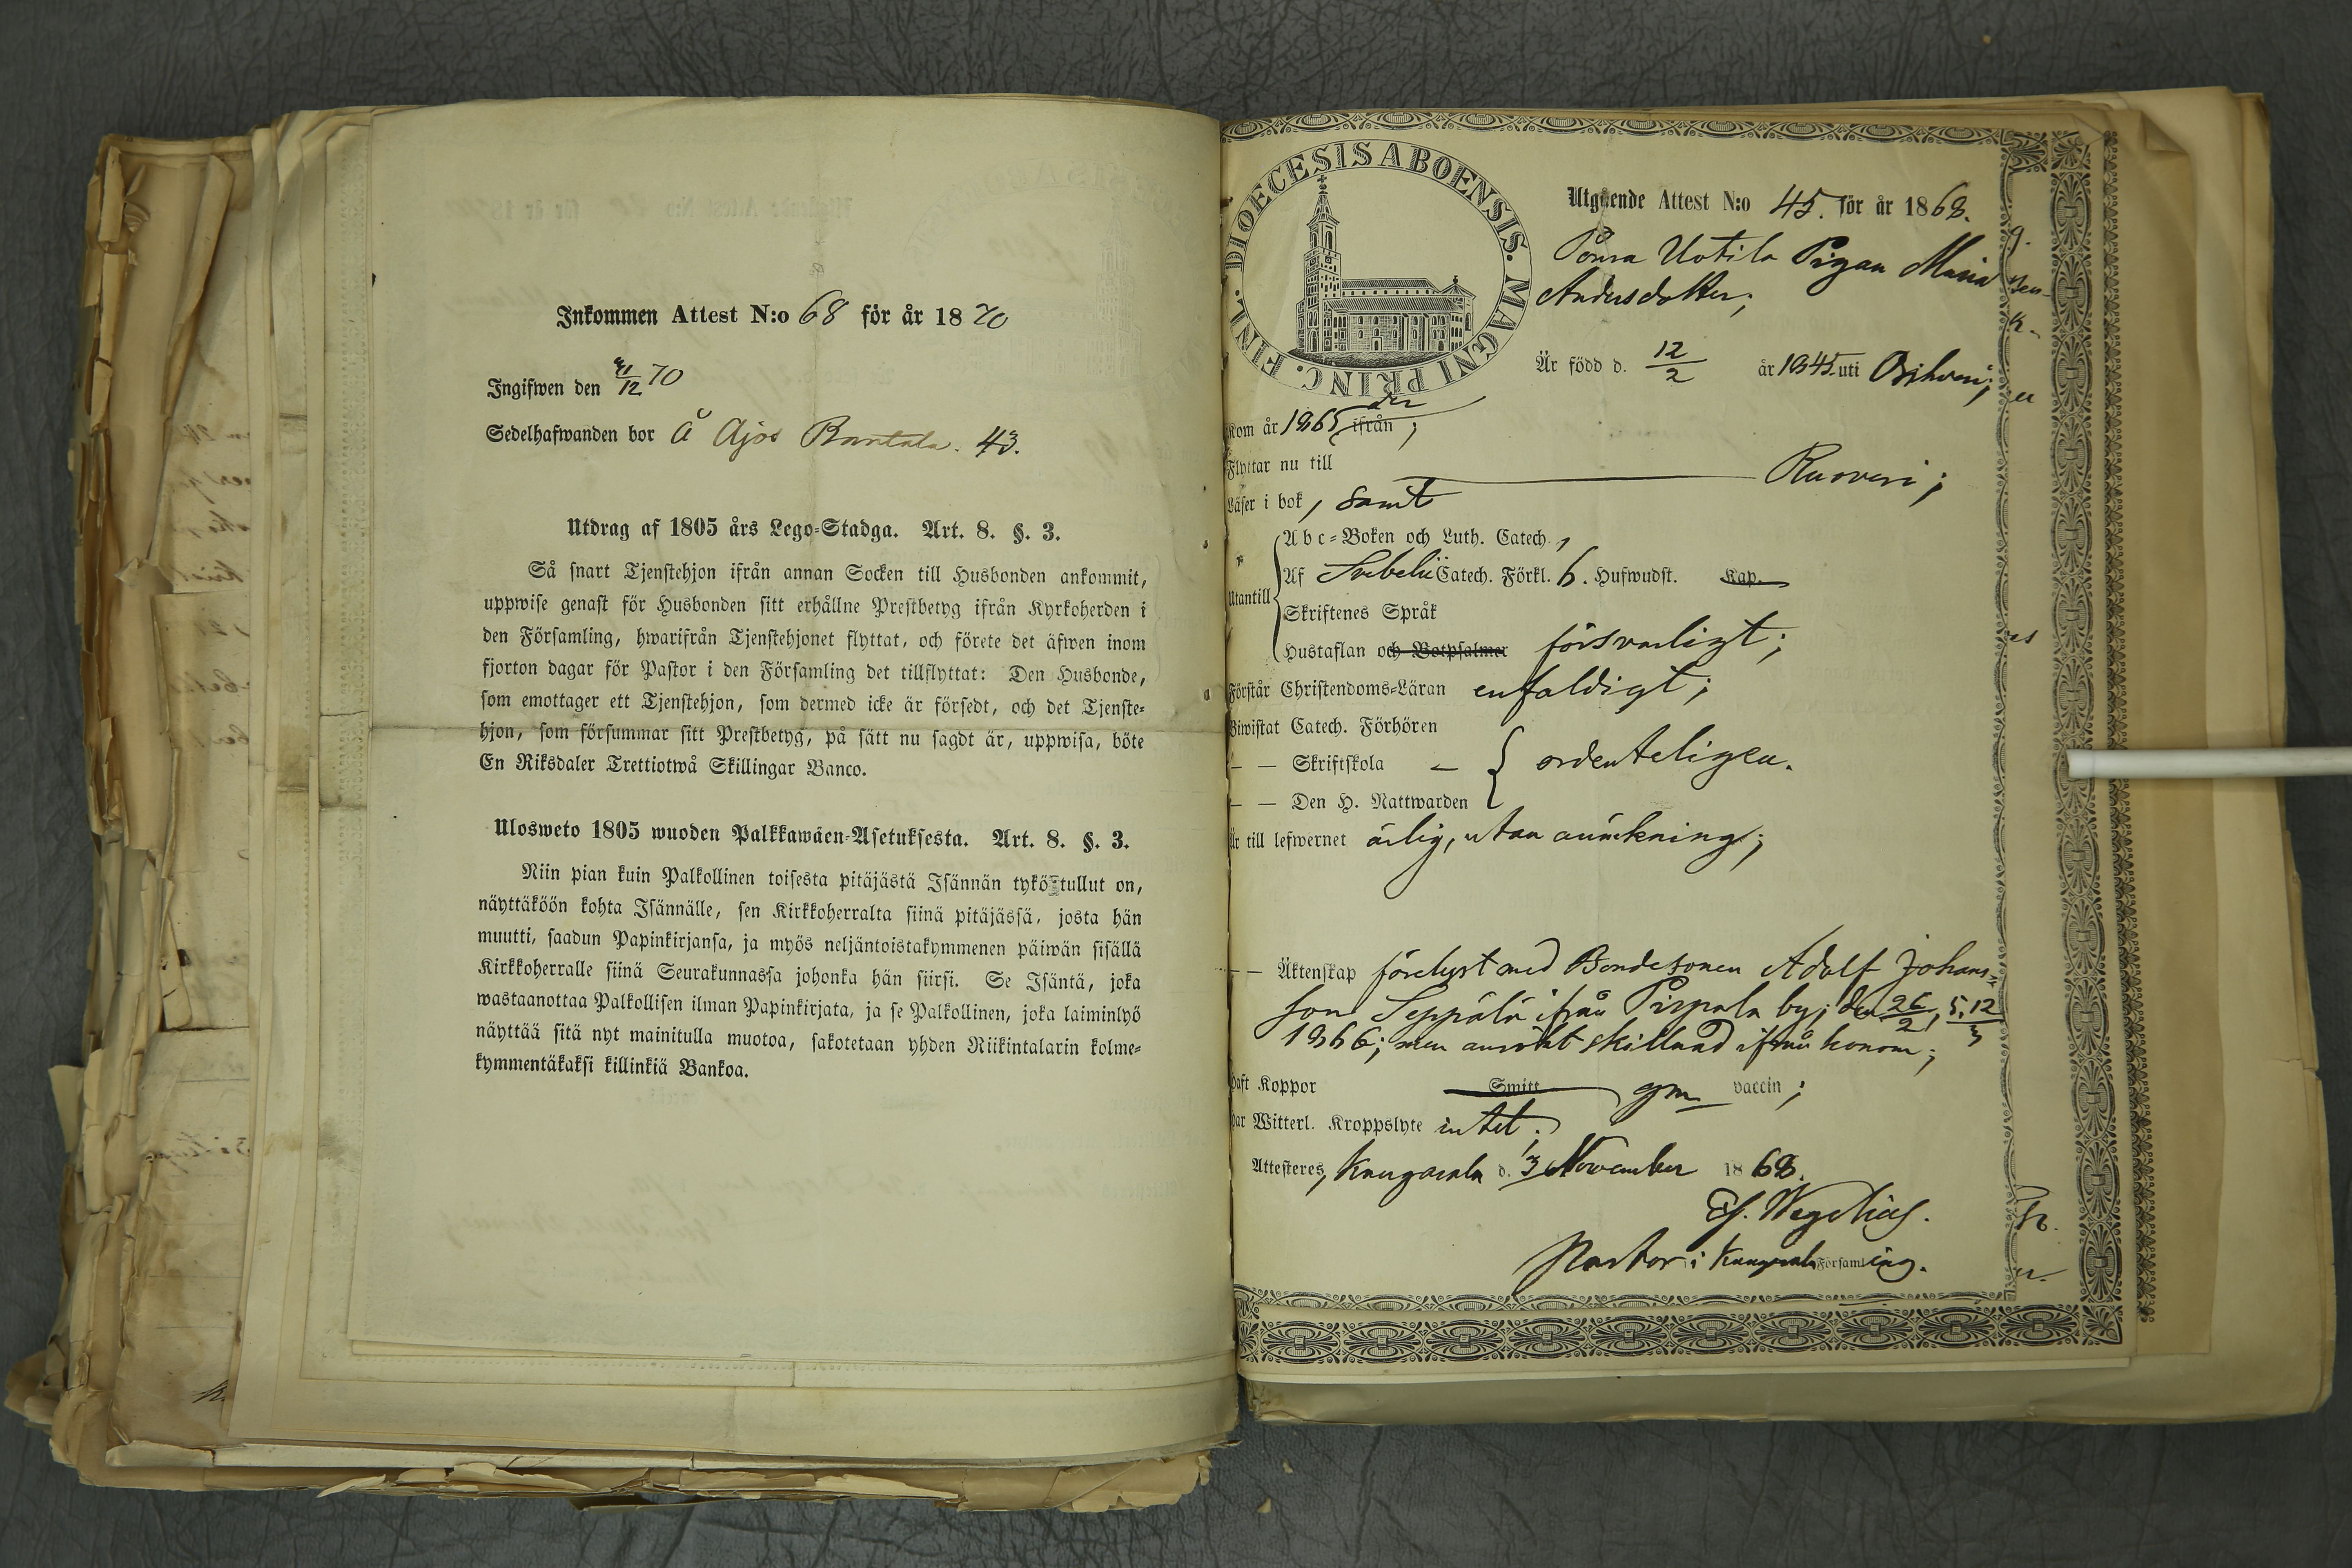 Inkommen Attest N:o 68 för år 1870
Ingifwen den 31/12 70
Sedelhafwanden bor å Ajos Rantala. 43.
Utdrag af 1805 års Lego-Stadga. Art. 8. §. 3.
Så snart Tjenstehjon ifrån annan Socken till Husbonden ankommit,
uppwise genast för Husbonden sitt erhållne Prestbetyg ifrån Kyrkoherden i
den Församling, hwarifrån Tjenstehjonet flyttat, och förete det äfwen inom
fjorton dagar för Pastor i den Församling det tillflyttat: Den Husbonde,
som emottager ett Tjenstehjon, som dermed icke är försedt, och det Tjenste-
hjon, som försummar sitt Prestbetyg, på sätt nu sagdt är, uppwisa, böte
En Riksdaler Trettiotwå Skillingar Banco.
Ulosweto 1805 wuoden Palkkawäen-Asetuksesta. Art. 8. §. 3.
Niin pian kuin Palkollinen toisesta pitäjästä Isännän tykö tullut on,
näyttäköön kohta Isännälle, sen Kirkkoherralta siinä pitäjässä, josta hän
muutti, saadun Papinkirjansa, ja myös neljäntoistakymmenen päiwän sisällä
Kirkkoherralle siinä Seurakunnassa johonka hän siirsi. Se Isäntä, joka
wastaanottaa Palkollisen ilman Papinkirjata, ja se Palkollinen, joka laiminlyö
näyttää sitä nyt mainitulla muotoa, sakotetaan yhden Riikintalarin kolme-
kymmentäkaksi killinkiä Bankoa.
DIOECESIS ABOENSIS. MAGNI PRINC. FINL.
Utgående Attest N:o 45. för år 1868.
Uotila Pigan Maria
Andersdotter;
Är född d. 12/2 år 1845 uti Orihvesi;
Kom år 1865 ifrån ;
Flyttar nu till Ruovesi;
Läser i bok, samt
Utantill
Abc-Boken och Luth. Catech.,
Af Svebelii Catech. Förkl. 6. Hufwudst. Kap.
Skriftenes Språk
Hustaflan och Botpsalmer försvarligt;
Förstår Christendoms-Läran enfaldigt;
Biwistat Catech. Förhören
— — Skriftskola — ordenteligen.
— — Den H. Nattwarden
Är till lefwernet ärlig, utan anmärkning;
— — Äktenskap förelyst med Bondesonen Adolf Johans-
son Seppälä ifrån Pispala by; den 26/2, 5, 12/3
1866; men ansökt skillnad ifrån honom;
Haft Koppor Smitt gm vaccin;
Har Witterl. Kroppslyte intet.
Attesteres, Kangasala d. 13 November 1868.
Wegelius.
Pastor i Kangasala Församling.